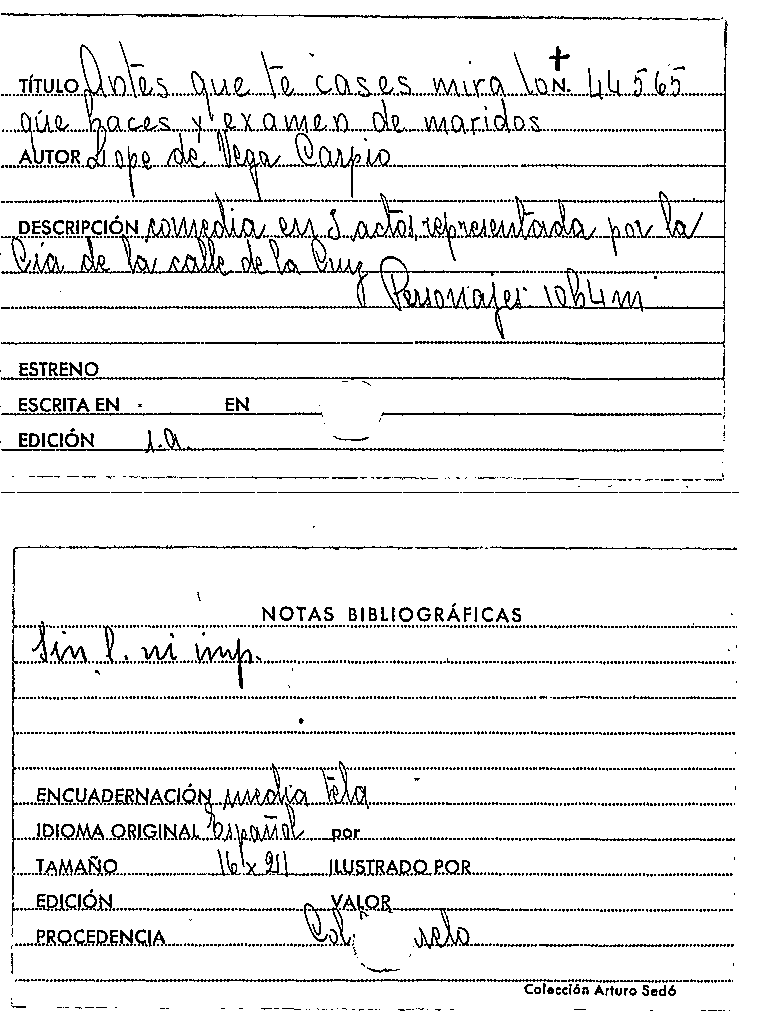 TÍTULO Antes que te cases mira lo N. 44565
que haces y examen de maridos
AUTOR Lope de Vega Carpio
DESCRIPCIÓN comedia en 3 actos, representada por la
Cía de la calle de la Cruz
Personajes 10h4m
ESTRENO
ESCRITA EN EN
EDICIÓN s.a.
NOTAS BIBLIOGRÁFICAS
Sin l. ni imp.
ENCUADERNACIÓN media tela
IDIOMA ORIGINAL Español por
TAMAÑO 16x21 ILUSTRADO POR
EDICIÓN VALOR
PROCEDENCIA
Colección Arturo Sedó